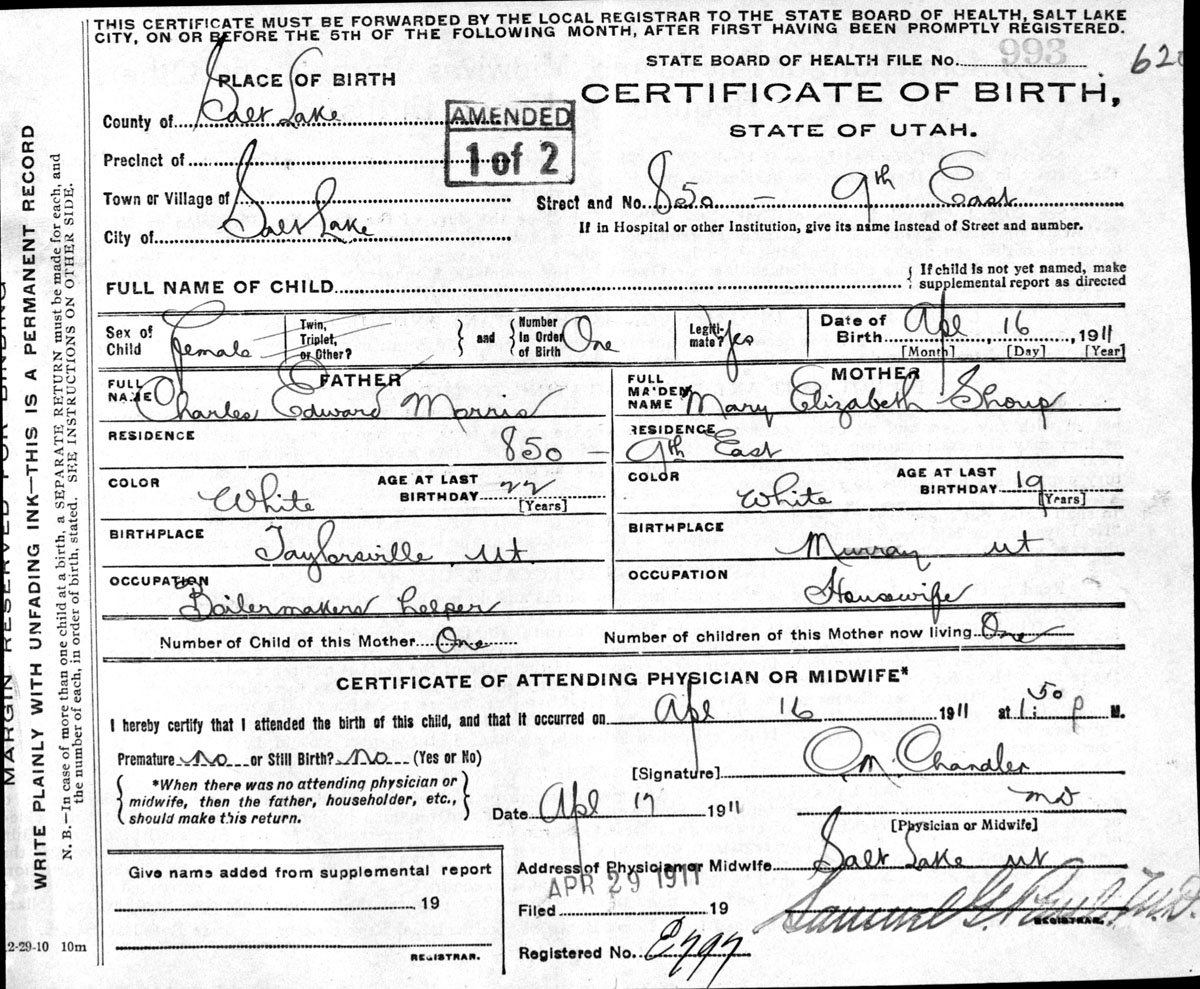 THIS CERTIFICATE MUST BE FORWARDED BY THE LOCAL REGISTRAR TO THE STATE BOARD OF HEALTH, SALT LAKE
CITY, ON OR BEFORE THE 5TH OF THE FOLLOWING MONTH, AFTER FIRST HAVING BEEN PROMPTLY REGISTERED.
993
STATE BOARD OF HEALTH FILE No.
620
PLACE OF BIRTH
CERTIFICATE OF BIRTH,
STATE OF UTAH.
County of Salt Lake
AMENDED
1 of 2
Precinct of
Town or Village of
Street and No. 850 - 9th East
City of Salt Lake
If in Hospital or other Institution, give its name instead of Street and number.
FULL NAME OF CHILD
{ If child is not yet named, make
supplemental report as directed
Sex of Child Female
Twin, Triplet, or Other? } and { Number in Order of Birth One
Legiti-mate? Yes
Date of Birth Apl 16, 1911
[Month] [Day] [Year]
FATHER
FULL NAME Charles Edward Morris
MOTHER
FULL MAIDEN NAME Mary Elizabeth Shoup
RESIDENCE 850 -
RESIDENCE 9th East
COLOR White AGE AT LAST BIRTHDAY 22 [Years]
COLOR White AGE AT LAST BIRTHDAY 19 [Years]
BIRTHPLACE Taylorsville, Ut.
BIRTHPLACE Murray Ut
OCCUPATION Boilermakers helper
OCCUPATION Housewife
Number of Child of this Mother One
Number of children of this Mother now living One
CERTIFICATE OF ATTENDING PHYSICIAN OR MIDWIFE*
I hereby certify that I attended the birth of this child, and that it occurred on Apl 16 1911 at 1:50 P M.
Premature No or Still Birth? No (Yes or No)
[Signature] O M. Chandler
{ *When there was no attending physician or
midwife, then the father, householder, etc.,
should make this return. }
Date Apl 17 1911
MD
[Physician or Midwife]
Address of Physician or Midwife Salt Lake Ut
Give name added from supplemental report
19
REGISTRAR.
APR 29 1911
Filed 19
Samuel G. Paul M.D.
REGISTRAR.
Registered No. E797
2-29-10 10m
MARGIN RESERVED FOR BINDING
WRITE PLAINLY WITH UNFADING INK—THIS IS A PERMANENT RECORD
N. B.—In case of more than one child at a birth, a SEPARATE RETURN must be made for each, and
the number of each, in order of birth, stated. SEE INSTRUCTIONS ON OTHER SIDE.